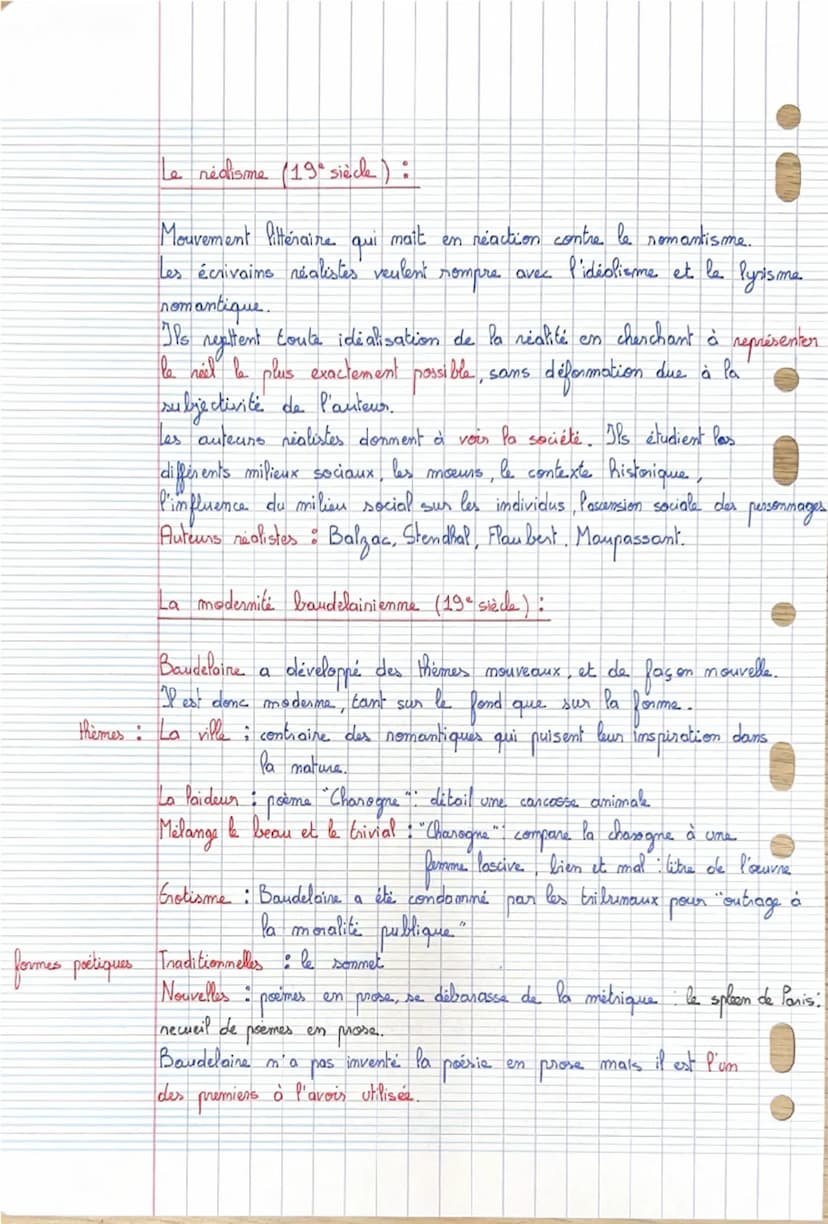 Le réalisme (19e siècle) :
Mouvement littéraire qui naît en réaction contre le romantisme.
Les écrivains réalistes veulent rompre avec l'idéalisme et le lyrisme
romantique.
Ils rejettent toute idéalisation de la réalité en cherchant à représenter
le réel le plus exactement possible, sans déformation due à la
subjectivité de l'auteur.
Les auteurs réalistes donnent à voir la société. Ils étudient les
différents milieux sociaux, les moeurs, le contexte historique,
l'influence du milieu social sur les individus, l'ascension sociale des personnages
Auteurs réalistes : Balzac, Stendhal, Flaubert, Maupassant.
La modernité baudelairienne (19e siècle) :
Baudelaire a développé des thèmes nouveaux, et de façon nouvelle.
Il est donc moderne, tant sur le fond que sur la forme.
thèmes : La ville ; contraire des romantiques qui puisent leur inspiration dans
la nature.
La laideur : poème "Charogne": détail une carcasse animale
Mélange le beau et le trivial : "Charogne": compare la charogne à une
femme lascive, bien et mal : titre de l'œuvre
Erotisme : Baudelaire a été condamné par les tribunaux pour "outrage à
la moralité publique"
formes poétiques Traditionnelles : le sonnet
Nouvelles : poèmes en prose, se débarasse de la métrique : le spleen de Paris:
recueil de poèmes en prose.
Baudelaire n'a pas inventé la poésie en prose mais il est l'un
des premiers à l'avoir utilisée.